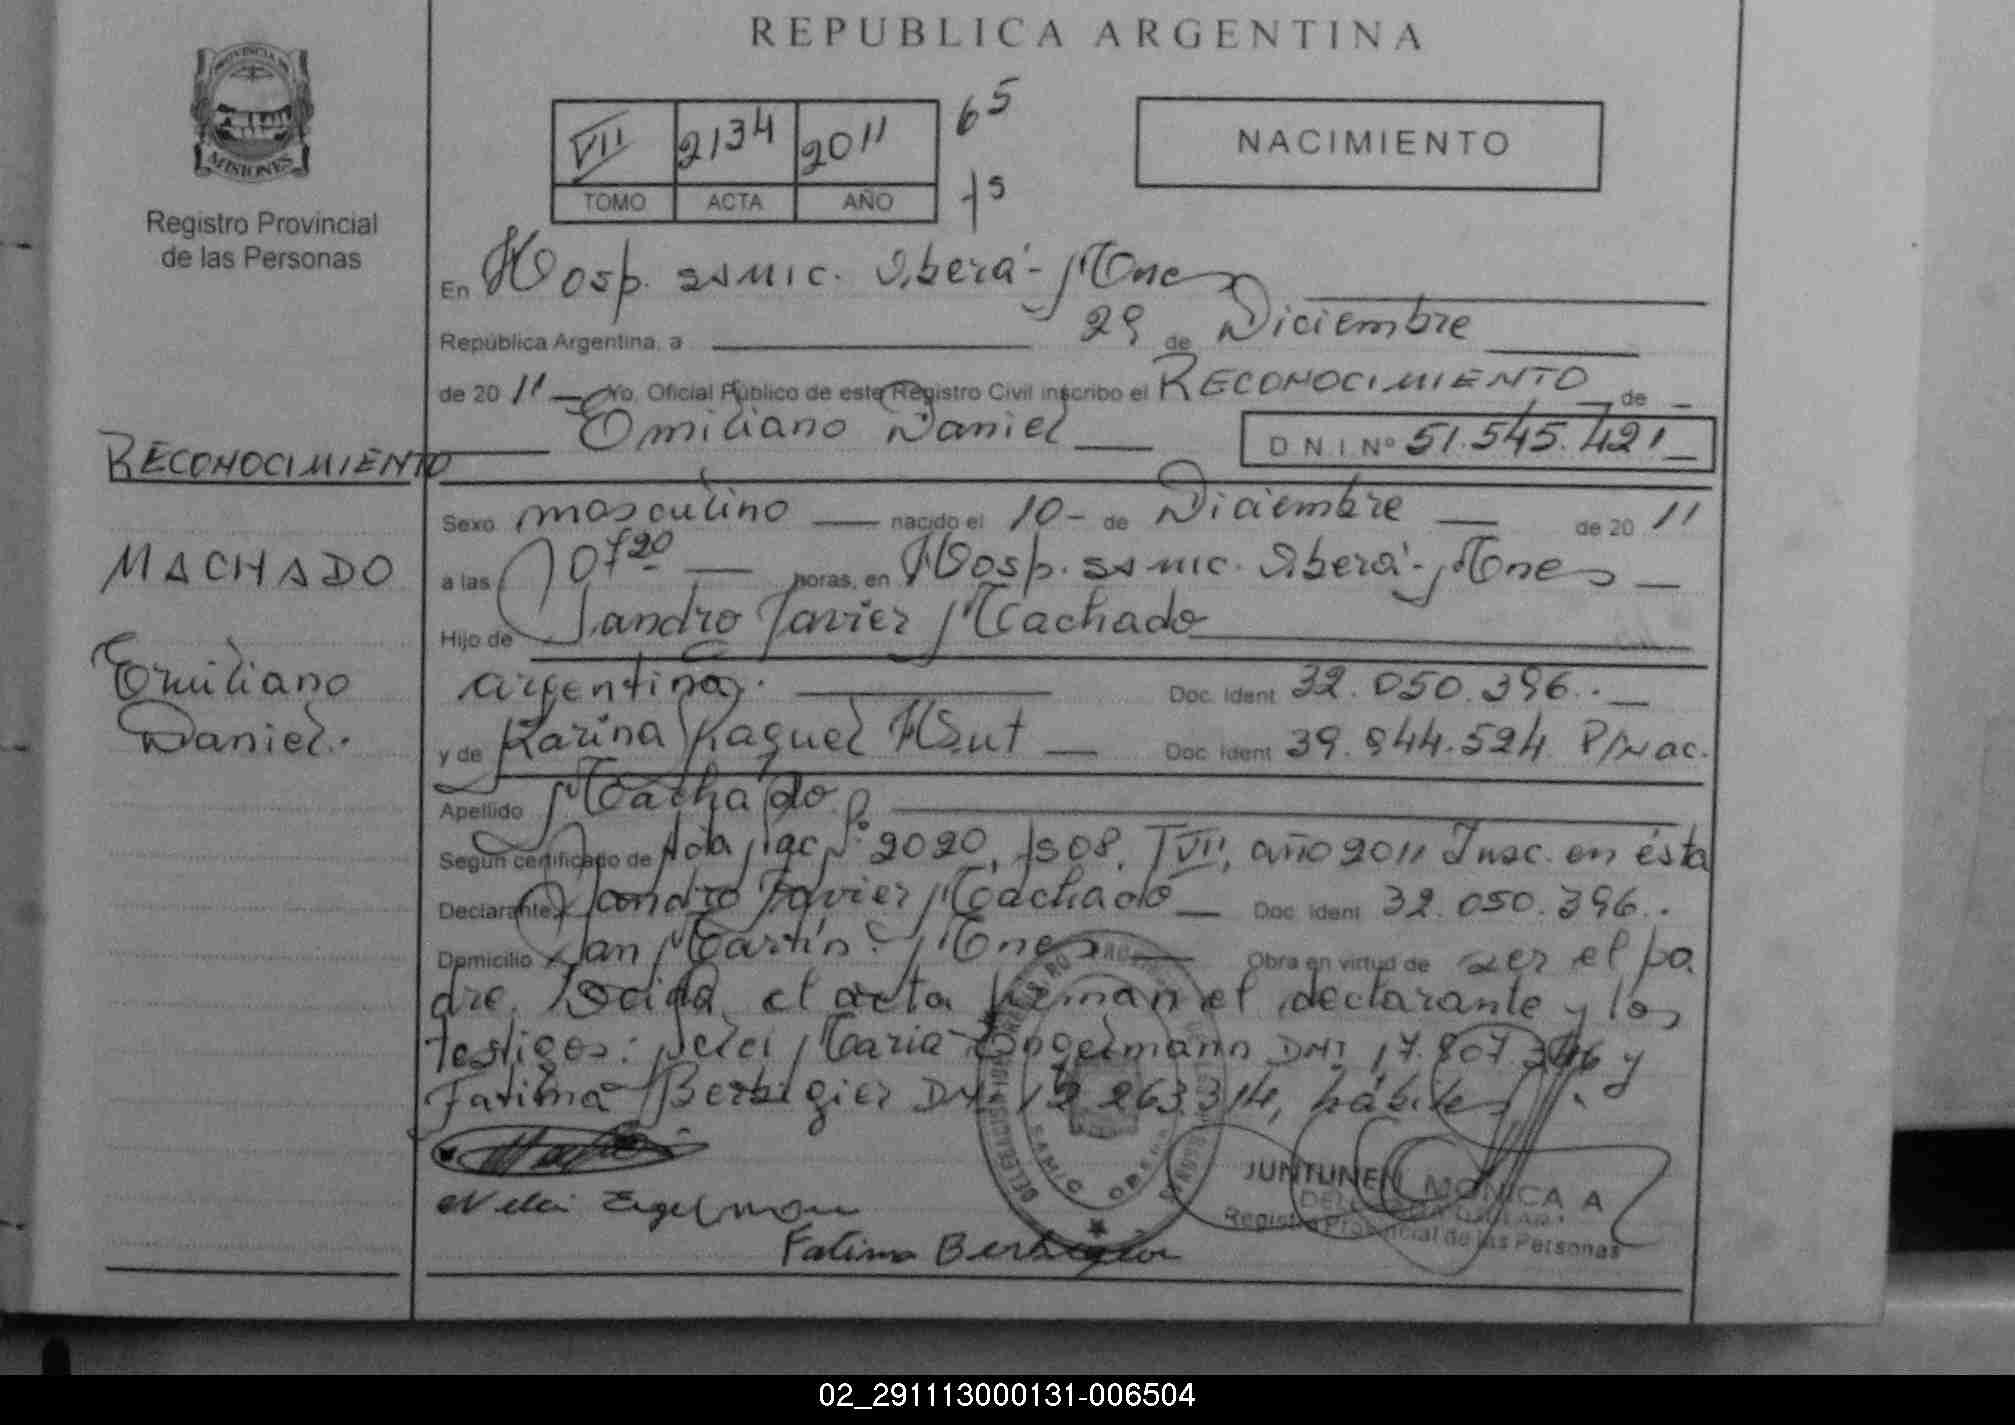 REPUBLICA ARGENTINA
PROVINCIA DE
MISIONES
Registro Provincial
de las Personas
VII 2134 2011
TOMO ACTA AÑO
65
fs
NACIMIENTO
En Hosp. SAMIC. Oberá - Mnes
República Argentina, a 29 de Diciembre
de 20 11 Yo, Oficial Público de este Registro Civil inscribo el RECONOCIMIENTO de
Emiliano Daniel D N I Nº 51.545.421
RECONOCIMIENTO
MACHADO
Emiliano
Daniel.
Sexo masculino nacido el 10 - de Diciembre de 20 11
a las 0720 horas, en Hosp. SAMIC. Oberá - Mnes
Hijo de Sandro Javier Machado
argentina. Doc. Ident 32.050.396.
y de Karina Raquel Doc. Ident 39.944.524 P/Nac.
Apellido Machado
Según certificado de Nº 2020, fs 08, T VII, año 2011 Insc. en ésta
Declarante Sandro Javier Machado Doc. Ident 32.050.396.
Domicilio San Martín - Mnes Obra en virtud de ser el pa
dre. Leída el acta firman el declarante y los
testigos: Nelci Maria Engelmann DNI 17.807.346 y
Fatima Berbigier 263.314, hábiles
Nelci Engelmann
Fatima Berbigier
JUNTUNEN MONICA A
Registro Provincial de las Personas
02_291113000131-006504